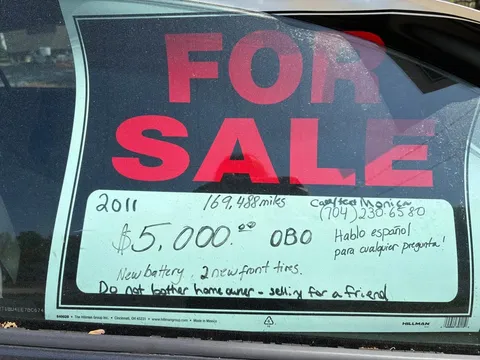 FOR
SALE
2011 169,488 miles Contact Monica
(704) 230-6580
$5,000.00 OBO Hablo español
para cualquier pregunta!
New battery. 2 new front tires.
Do not bother homeowner - selling for a friend
The Hillman Group Inc. Cincinnati, OH 45231 www.hillmangroup.com Made in Mexico
HILLMAN